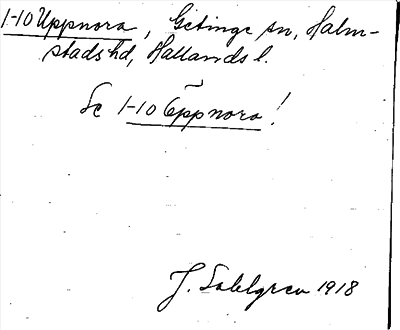 1-10 Uppnora, Getinge sn, Halm-
stads hd, Hallands l.
Se 1-10 Öppnora!
J. Sahlgren 1918